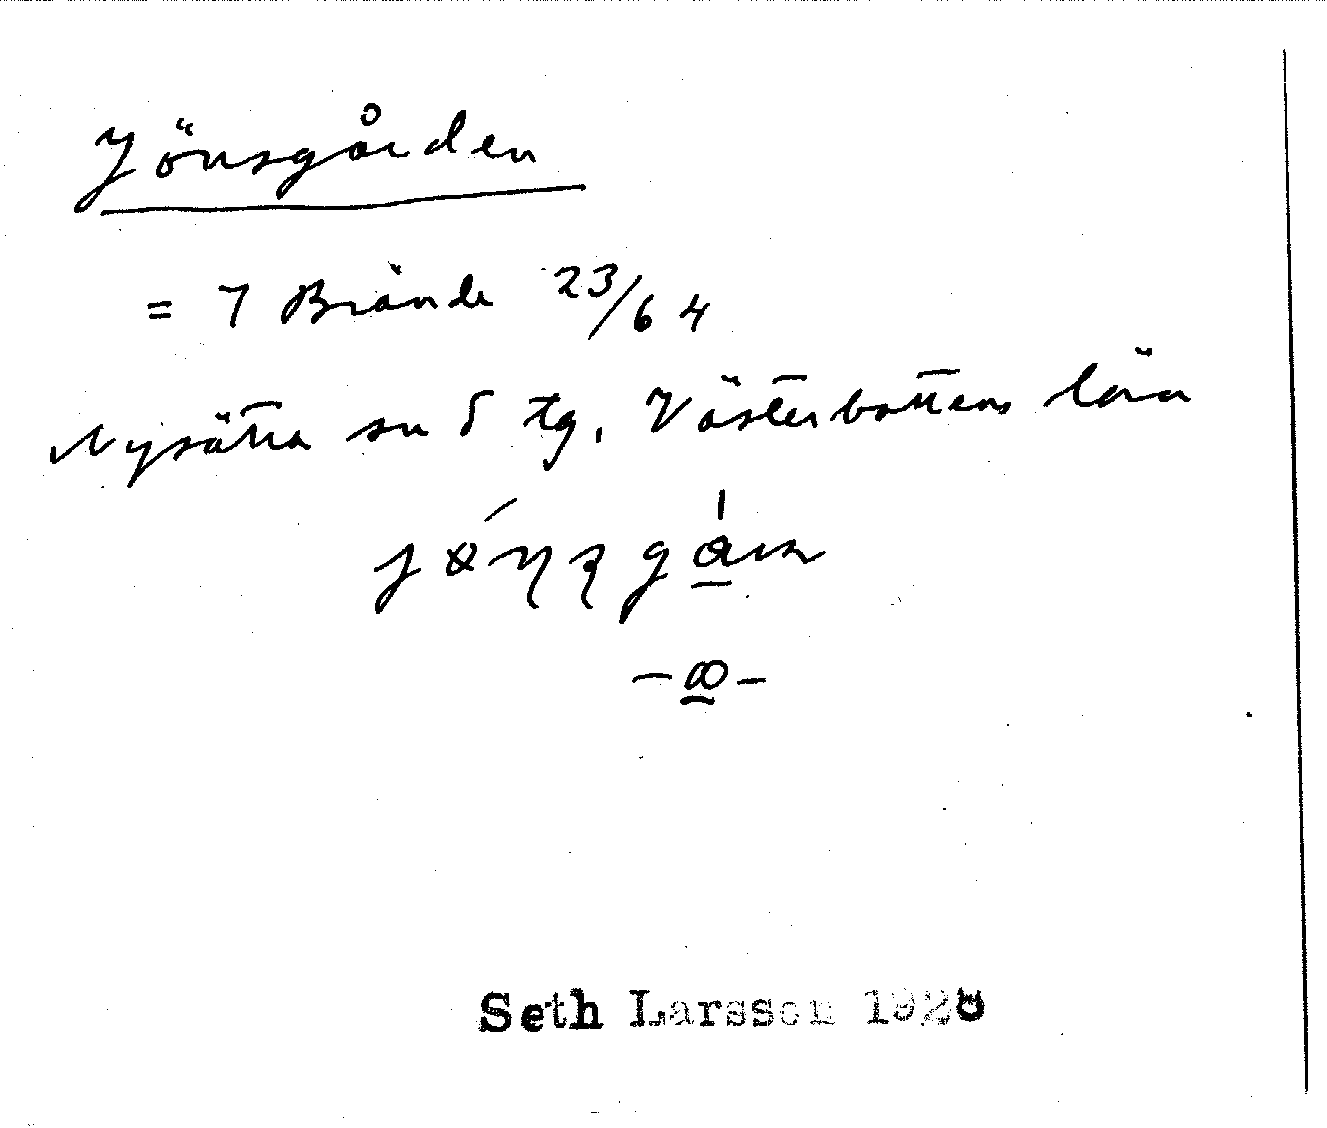 Jönsgården
= 7 Brände 23/64
Nysätra sn S tg. Västerbottens län
Seth Larsson 192